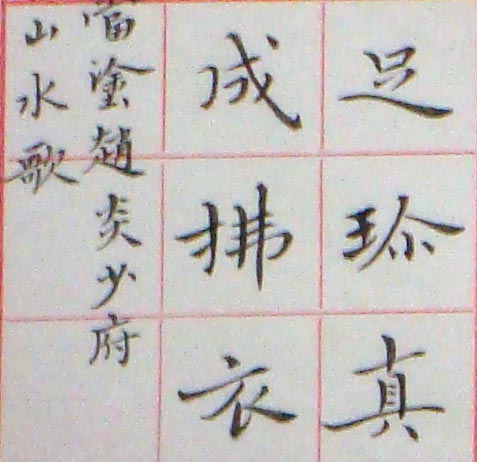 足珎真
成拂衣
當塗趙炎少府
山水歌